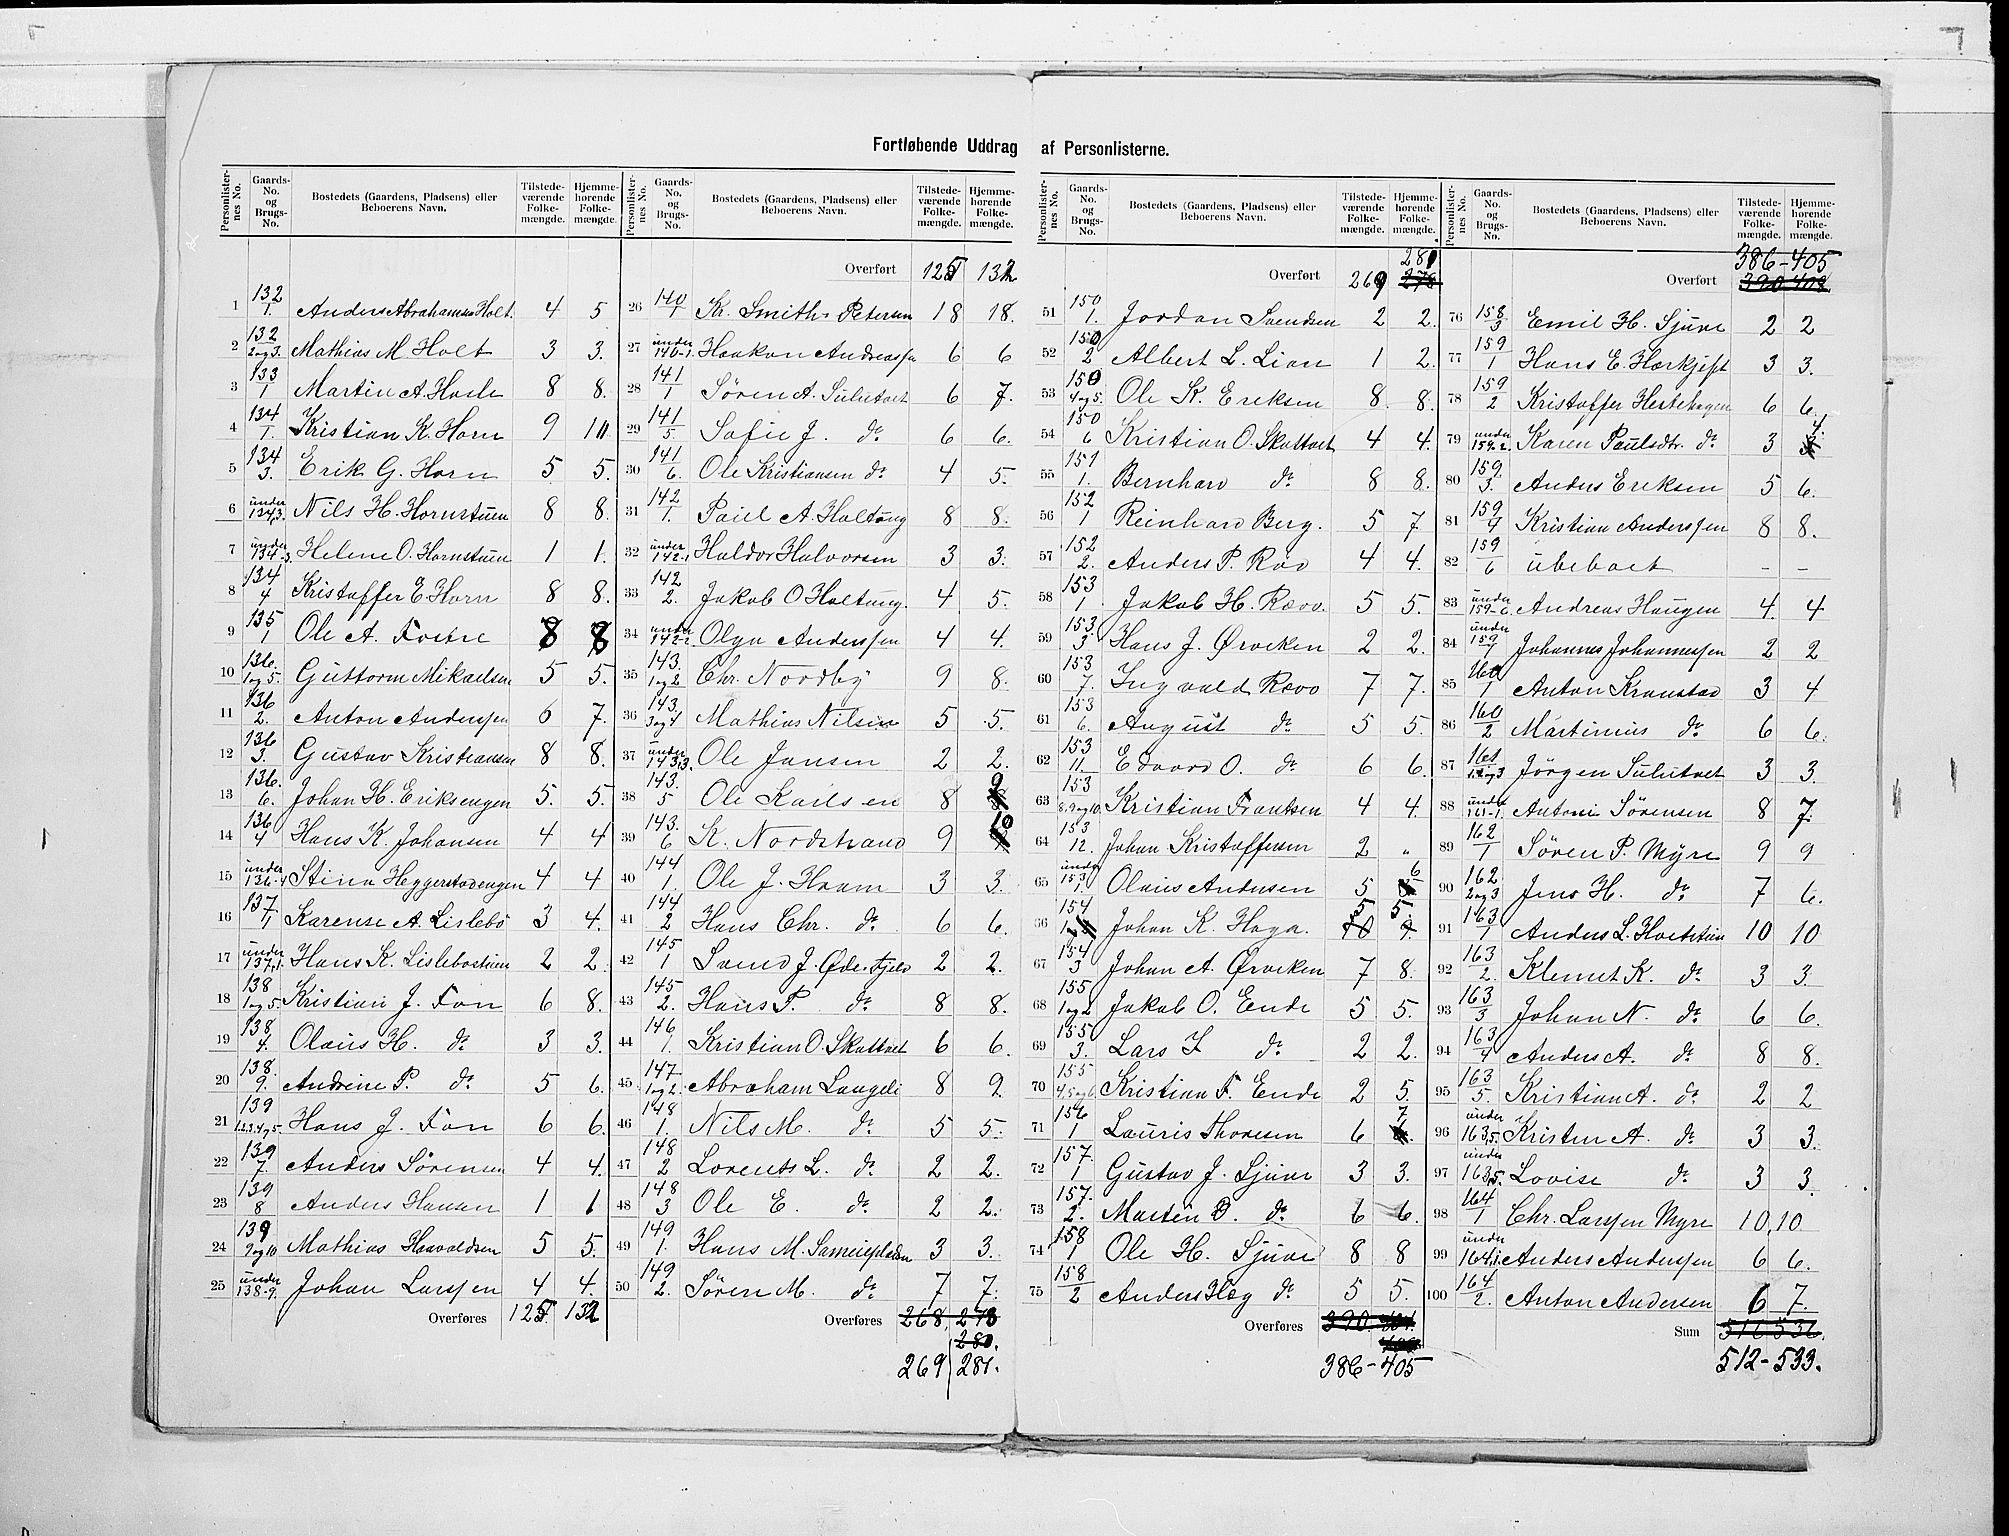 Fortløbende Uddrag af Personlisterne.
Personlister-nes No. Gaards-No. og Brugs-No. Bostedets (Gaardens, Pladsens) eller Beboerens Navn. Tilstede-værende Folke-mængde. Hjemme-hørende Folke-mængde.
Personlister-nes No. Gaards-No. og Brugs-No. Bostedets (Gaardens, Pladsens) eller Beboerens Navn. Tilstede-værende Folke-mængde. Hjemme-hørende Folke-mængde.
Personlister-nes No. Gaards-No. og Brugs-No. Bostedets (Gaardens, Pladsens) eller Beboerens Navn. Tilstede-værende Folke-mængde. Hjemme-hørende Folke-mængde.
Personlister-nes No. Gaards-No. og Brugs-No. Bostedets (Gaardens, Pladsens) eller Beboerens Navn. Tilstede-værende Folke-mængde. Hjemme-hørende Folke-mængde.
1 132/1. Anders Abrahamsen Holt. 4 5
2 132/2 og 3. Mathias M Holt 3 3.
3 133/1 Martin A. Hasle 8 8.
4 134/1. Kristian K. Horn 9 10
5 134/3. Erik G. Horn 5 5.
6 under 134,3. Nils H. Hornstuen 8 8.
7 under 134-3. Helene O. Hornstuen 1 1.
8 134/4 Kristoffer E. Horn 8 8.
9 135/1 Ole A. Fostre 8 8
10 136./1 og 5. Guttorm Mikaelsen 5 5.
11 136/2. Anton Anderssen 6 7.
12 136/3. Gustav Kristiansen 8 8.
13 136./6. Johan H. Eriksengen 5. 5.
14 136/4 Hans K. Johansen 4 4
15 under 136-4 Stina Heggerstadengen 4 4
16 137/1 Karense A. Lislebö 3 4.
17 under 137,1. Hans K. Lislebostuen 2 2
18 138/1 og 5. Kristian J. Fon 6 8.
19 138/4. Olaus H. do 3 3.
20 138./9. Andrine P. do 5 6.
21 139/1.2.3.4 og 5. Hans J. Fon 6 6.
22 139/7. Anders Sörensen 4 4.
23 139/8 Anders Hansen 1 1
24 139/9 og 10 Mathias Haavaldsen 5 5.
25 under 138-9. Johan Larssen 4 4.
Overføres 125. 132
Overført 125 132
26 140/1 Kr. Smith-Petersen 18 18.
27 under 140-1. Haakon Andreassen 6 6
28 141/1 Sören A. Sulutvet 6 7.
29 141/5. Sofie J. do 6 6.
30 141/6. Ole Kristiansen do 4 5.
31 142/1. Paul A. Holtung 8 8.
32 under 142-1 Haldor Halvorsen 3 3.
33 142/2. Jakob O Holtung. 4 5.
34 under 142-2. Olga Anderssen 4 4.
35 143./1 og 2 Chr. Nordby 9 8.
36 143./3 og 4 Mathias Nilsen 5 5.
37 under 143,3. Ole Jansen 2 2.
38 143./5 Ole Karlsen 8 9
39 143./6 K. Nordstrand 9 10
40 144/1. Ole J. Haam 3 3.
41 144/2 Hans Chr. do 6 6.
42 145/1 Svend J. Ødersfjeld 2 2.
43 145/2. Hans P. do 8 8.
44 146/1. Kristian O. Skattvet 6 6.
45 147/1 og 2. Abraham Langeli 8 9
46 148/1. Nils M. do 5 5.
47 148/2 Lorents L. do 2 2.
48 148/3 Ole E. do 2 2.
49 149/1. Hans M. Sameiepladsen 3 3.
50 149/2. Sören M. do 7 7.
Overføres 268. 278
280.
269 281.
281
Overført 269 278
51 150/1. Jordan Svendsen 2 2.
52 150/2 Albert L. Lian 1 2.
53 150/4 og 5. Ole K. Eriksen 8 8.
54 150/6 Kristian O. Skattvet 4 4.
55 151/1. Bernhard do 8 8.
56 152/1 Reinhard Berg. 5 7.
57 152/2. Anders P. Röd 4 4.
58 153/1 Jakob H. Rævo. 5 5.
59 153/3 Hans J. Ørveken 2 2.
60 153/7. Ingvald Rævo 7 7.
61 153/6. August do 5 5.
62 153/11. Edvard O. do 6 6.
63 153/8,9 og 10. Kristian Frantsen 4 4.
64 153/12. Johan Kristoffersen 2 "
65 under 153/1. Olaus Andersen 5 6
66 154/1 Johan K. Haga. 5 5.
67 154/3 Johan A. Ørveken 7 8.
68 155/1 og 2 Jakob O. Ende 5 5.
69 155/3. Lars I do 2 2.
70 155/4,5 og 6 Kristian F. Ende 2 5.
71 156/1 Lauris Thoresen 6 7
72 157./1 Gustav J. Sjuve 3 3.
73 157./2. Marten O. do 6 6.
74 158/1 Ole H. Sjuve 8 8
75 158/2 Anders Hög do 5 5.
Overføres 390. 404.
386-405
386-405
Overført 390 403
76 158/3 Emil H. Sjuve 2 2
77 159/1 Hans E. Hærkjift 3 3.
78 159/2 Kristoffer Hestehagen 6 6.
79 under 159-2. Karen Paulsdtr. do 3 4.
80 159./3. Anders Eriksen 5 6.
81 159/4 Kristian Anderssen 8 8.
82 159/6 ubeboet - -
83 under 159-6. Andreas Haugen 4. 4
84 under 159/7 Johannes Johannessen 2 2
85 160/1 Anton Kranstad 3 4
86 160/2 Martinius do 6 6.
87 161/1.2 og 3 Jörgen Sulutvet 3 3.
88 under 161-1. Antoni Sörensen 8 7.
89 162/1 Sören P. Myre 9 9
90 162/2 og 3 Jens H. do 7 6.
91 163/1 Anders L. Holtstuen 10 10
92 163/2. Klemet K. do 3 3.
93 163/3 Johan N. do 6 6.
94 163/4 Anders A. do 8 8.
95 163/5. Kristian A. do 2 2
96 under 163,5. Kristen A. do 3 3.
97 under 163,5. Lovise do 3 3.
98 164/1 Chr. Larssen Myre 10. 10
99 under 164,1. Anders Anderssen 6 6.
100 164/2. Anton Andersen 6 7.
Sum 516 536.
512-533.